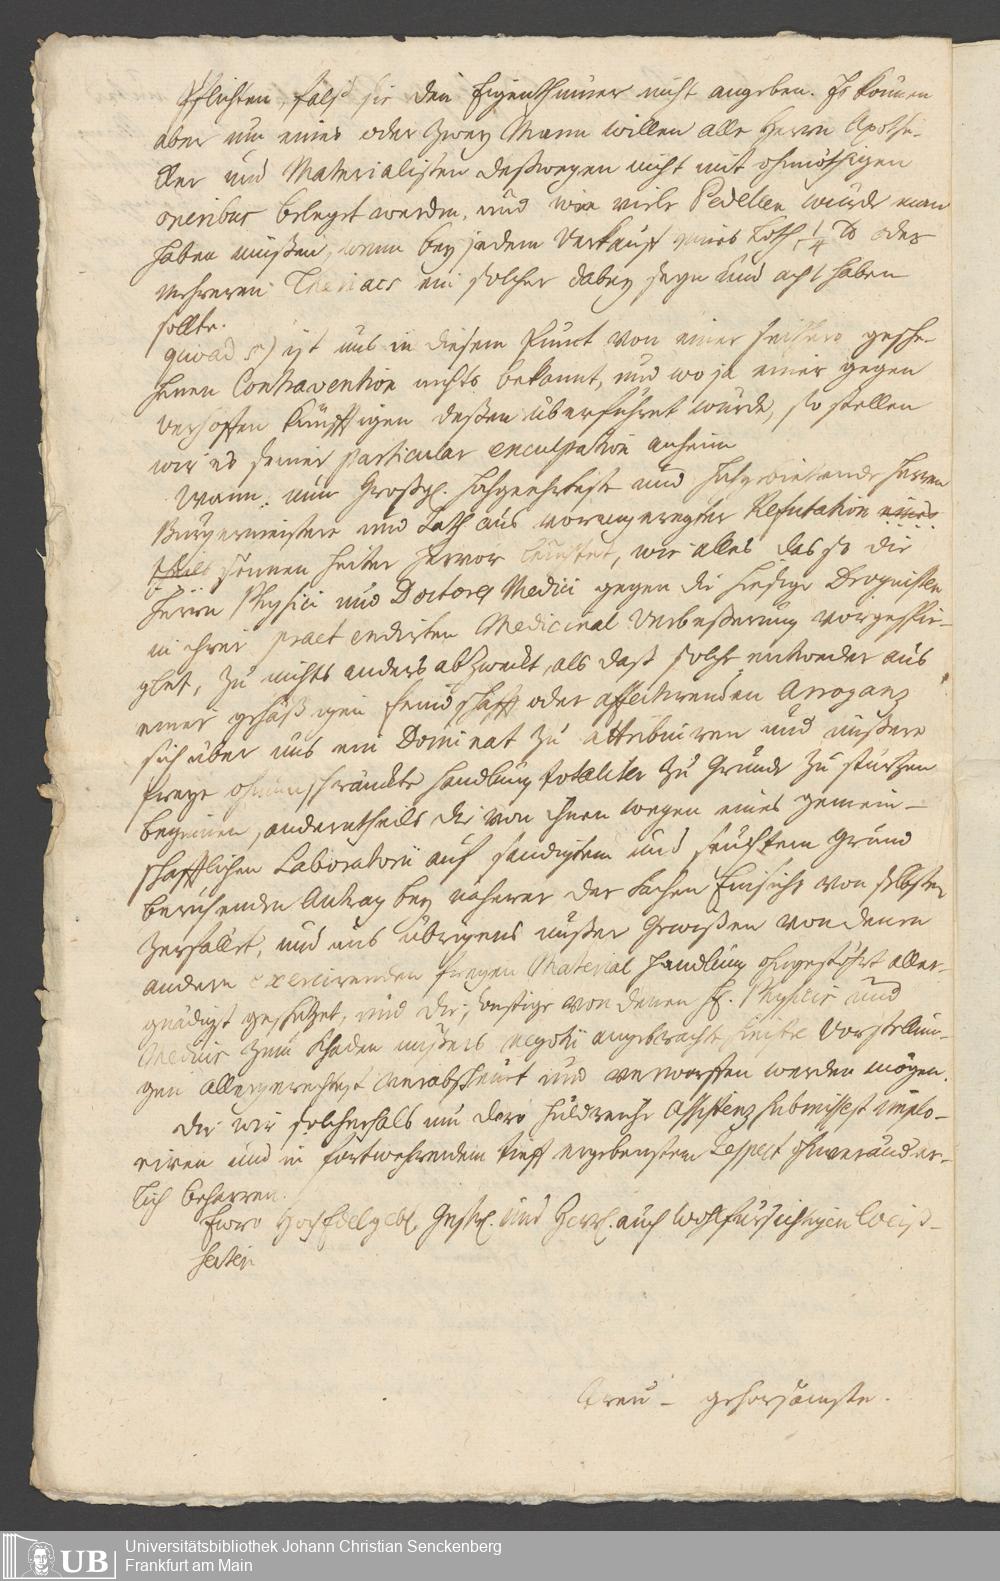 Pflichten, falß sie den Eigenthümer nicht angeben. Es können
aber um eines oder zwey Mann willen alle Herrn Apothe-
cker und Materialisten deßwegen nicht mit ohnnöthigen
oneribus beleget werden, und wie viele Pedellen würde man
haben müßen, wenn bey jedem Verkauff eines Loth, 1/4 ℔ oder
mehreren Theriacs ein solcher dabey seyn und acht haben
sollte.
quoad 5) ist uns in diesem Punct von einer seithero gesche-
henen Contravention nichts bekannt, und wo ja einer gegen
verhoffen künfftigen deßen überführet würde, so stellen
wir es seiner particular exculpation anheim
Wann nun Großgl. Hochgeehrteste und Hochgebietende Herren
Burgermeistere und Rath aus vorangeregter Refutation eines
theils sonnen heiter hervor leuchtet, wie alles das so die
Herrn Physici und Doctores Medici gegen die hiesige Droguisten
in ihrer praetendirten Medicinal Verbeßerung vorgespie-
glet, zu nichts anders abzweckt, als daß solche entweder aus
einer gehäßigen feindschafft oder affectirenden Arroganz
sich über uns ein Dominat zu attribuiren und unßere
freye ohneingschränckte Handlung totaliter zu Grunde zu stürtzen
beginnen, anderntheils der von ihnen wegen eines gemein-
schafftlichen Laboratorii auf sandigtem und feuchtem Grund
beruhenden Antrag bey näherer der Sachen Einsicht von selbsten
zerfället, und uns übrigens unßer Gewißen von denen
andern exercirenden freyen Material Handlung ohngestöhrt aller-
gnädigst geschützet, und die sonstige von denen H. Physicis und
Medicis zum Schaden unßers negotii angebrachte seichte Vorstellun-
gen allergerechtest verabscheuet und verworffen werden mögen.
Die wir solcherhalb um dero Huldreiche Assistenz submissest implo-
riren und in fortwehrendem tieff ergebenstem Respect ohnveränder-
lich beharren.
Euro HochEdelgebl. Gestl. und Herrl. auch Wohlfürsichtigen Weiß-
heiten
treu - gehorsamste.
Universitätsbibliothek Johann Christian Senckenberg
UB
Frankfurt am Main